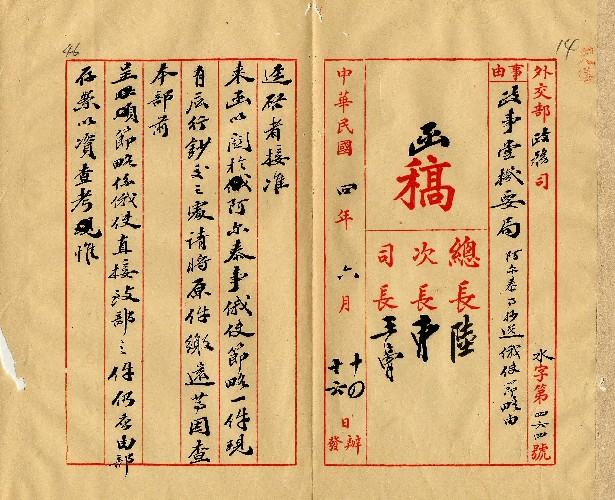 14
外交部政務司 水字第四六四號
事由 政事堂機要局 阿尔泰事抄送俄使節略由
函稿
總長 陸
次長 曹
司長
中華民國四年六月 十四日辦
十六日發
46
逕啓者接准
来函以関於阿尔泰事俄使節略一件現
有應行鈔交之處請将原件繳還等因查
本部前
呈節略係俄使直接致部之件仍應由部
存案以資查考惟